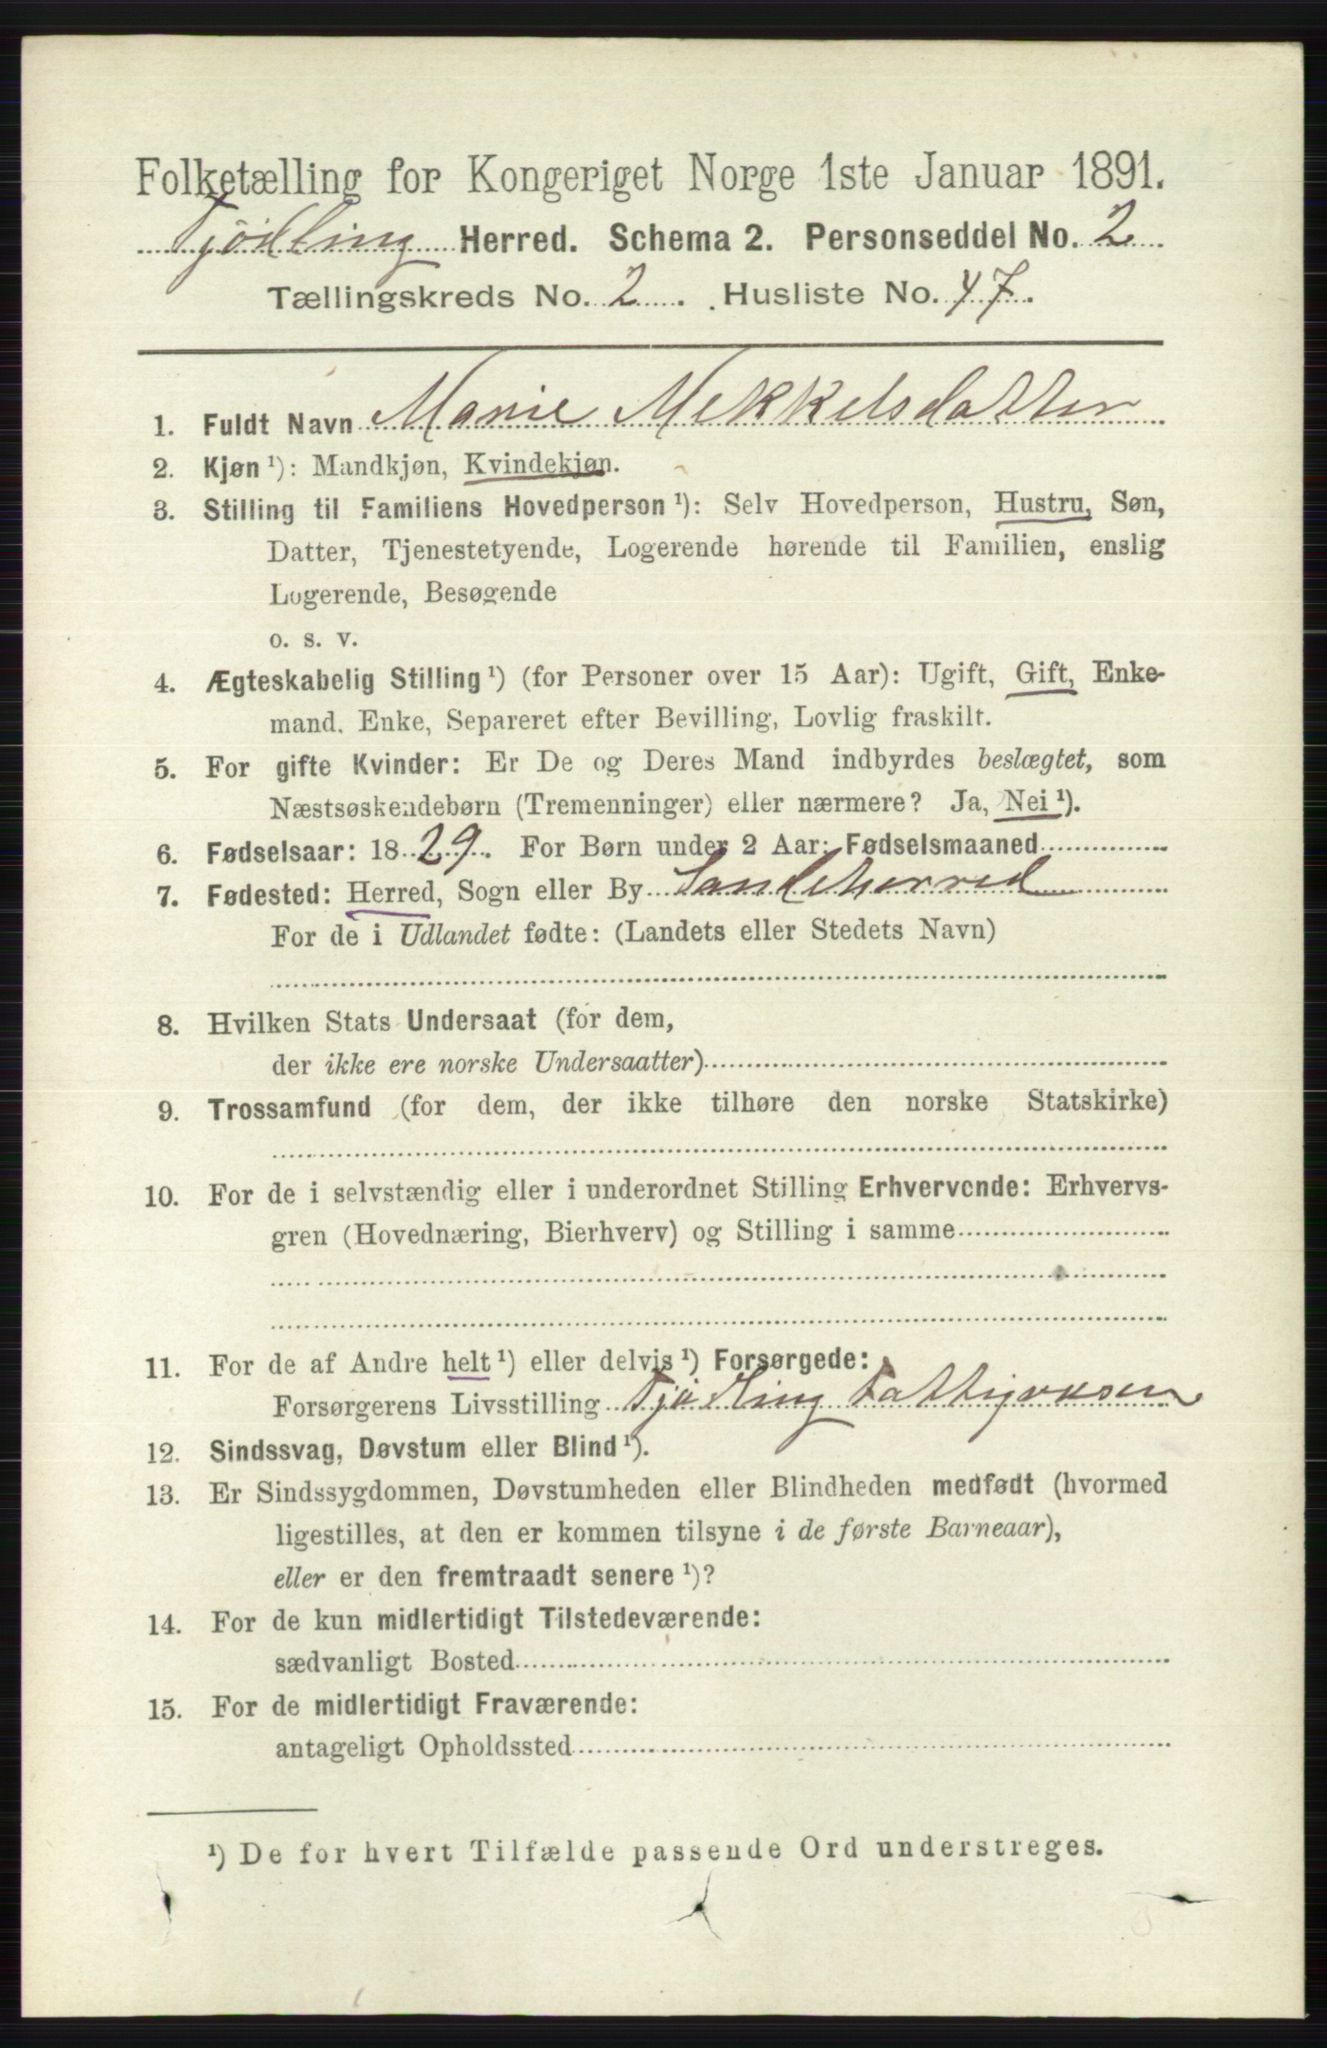 Folketælling for Kongeriget Norge 1ste Januar 1891.
Tjødling Herred. Schema 2. Personseddel No. 2
Tællingskreds No. 2. Husliste No. 47.
1. Fuldt Navn Marie Mekkelsdatter
2. Kjøn ¹): Mandkjøn, Kvindekjøn.
3. Stilling til Familiens Hovedperson ¹): Selv Hovedperson, Hustru, Søn,
Datter, Tjenestetyende, Logerende hørende til Familien, enslig
Logerende, Besøgende
o. s. v.
4. Ægteskabelig Stilling ¹) (for Personer over 15 Aar): Ugift, Gift, Enke-
mand, Enke, Separeret efter Bevilling, Lovlig fraskilt.
5. For gifte Kvinder: Er De og Deres Mand indbyrdes beslægtet, som
Næstsøskendebørn (Tremenninger) eller nærmere? Ja, Nei ¹).
6. Fødselsaar: 1829. For Børn under 2 Aar: Fødselsmaaned
7. Fødested: Herred, Sogn eller By Sandeherred
For de i Udlandet fødte: (Landets eller Stedets Navn)
8. Hvilken Stats Undersaat (for dem,
der ikke ere norske Undersaatter)
9. Trossamfund (for dem, der ikke tilhøre den norske Statskirke)
10. For de i selvstændig eller i underordnet Stilling Erhvervende: Erhvervs-
gren (Hovednæring, Bierhverv) og Stilling i samme
11. For de af Andre helt ¹) eller delvis ¹) Forsørgede:
Forsørgerens Livsstilling Tjødling Fattigvæsen
12. Sindssvag, Døvstum eller Blind ¹).
13. Er Sindssygdommen, Døvstumheden eller Blindheden medfødt (hvormed
ligestilles, at den er kommen tilsyne i de første Barneaar),
eller er den fremtraadt senere ¹)?
14. For de kun midlertidigt Tilstedeværende:
sædvanligt Bosted
15. For de midlertidigt Fraværende:
antageligt Opholdssted
¹) De for hvert Tilfælde passende Ord understreges.